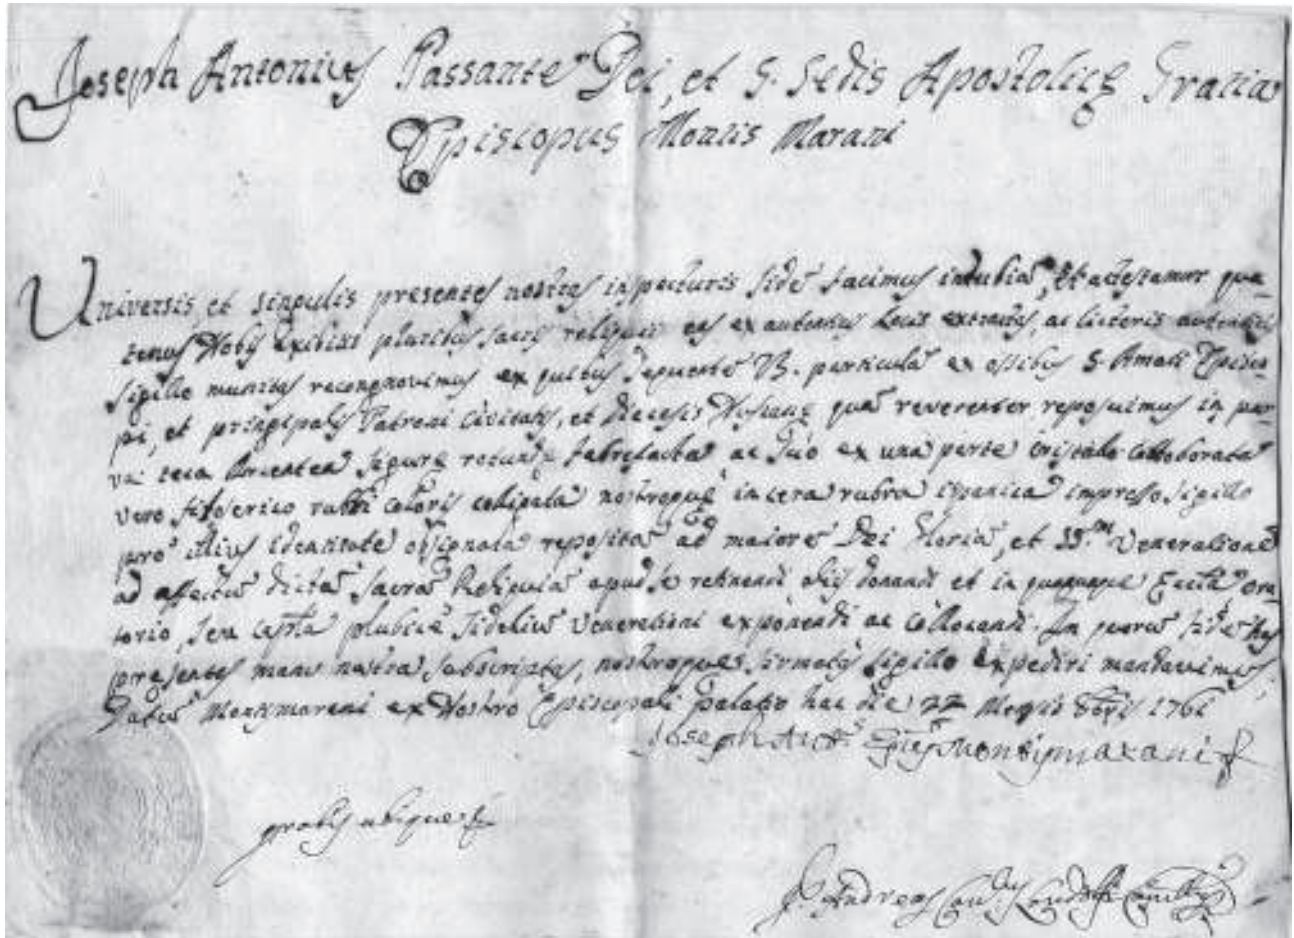 Joseph Antonius Passante Dei, et S. Sedis Apostolicę Gratia
Episcopus Montis Marani
Universis, et singulis presentes nostras inspecturis fidē facimus indubiā, et attestamur qua-
tenus Nobis exibitis pluribus sacris reliquiis eas ex autenticis Locis extractas, ac litteris autenticis
sigillo munitas recongnovimus ex quibus particulā ex ossibus S. Amati Episco-
pi, et principalis Patroni Civitatis, et Diecesis Nuscanę quā reverenter reposuimus in par-
va teca figurę rotundę ac ex una parte cristallo
vero coloris colligata nostroque in cera rubra ispanica impresso sigillo
pro illius identitate reposita ad maiorē Dei Gloriā, et SS.m Venerationē
ad effectū dictā sacrā Reliquiā apud se retinendi aliis donandi et in quacunque Eccl.a Ora-
torio, seu publicę fidelium Venerationi exponendi ac collocandi. In quorū fidē has
presentes manu nostra subscriptas, nostroque firmatas sigillo expediri mandavimus,
Datū Montismarani ex Nostro Episcopali Palatio hac die 22 Mensis 8bris 1761
Joseph Ant.s Ep.us Montismarani
gratis ubique
Andreas Can.cus